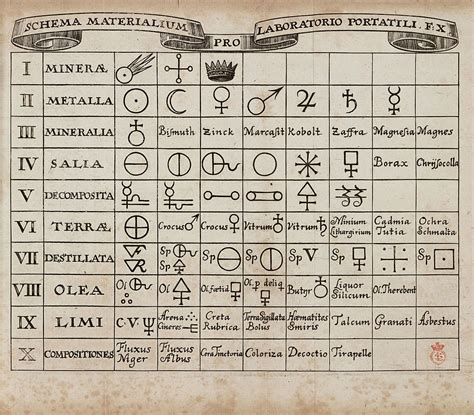 SCHEMA MATERIALIUM PRO LABORATORIO PORTATILI. F.X
I MINERÆ
II METALLA
III MINERALIA Bismuth Zinck Marcasit Kobolt Zaffra Magnesia Magnes
IV SALIA Borax Chrÿsocolla
V DECOMPOSITA
VI TERRÆ Crocus Crocus Vitrum Vitrum Minium Cadmia Ochra
Lithargirium Tutia Schmalta
VII DESTILLATA Sp Sp Sp Sp Sp Sp
VIII OLEA Ol Ol Ol fœtid Ol p. deliq Butyr Liquor Ol Therebent
Silicum
IX LIMI C.V. Arena Creta Terra Sigillata Hæmatites Talcum Granati Asbestus
Cineres Rubrica Bolus Smiris
X COMPOSITIONES Fluxus Fluxus Cera Tinctoria Coloriza Decoctio Tirapelle
Niger Albus